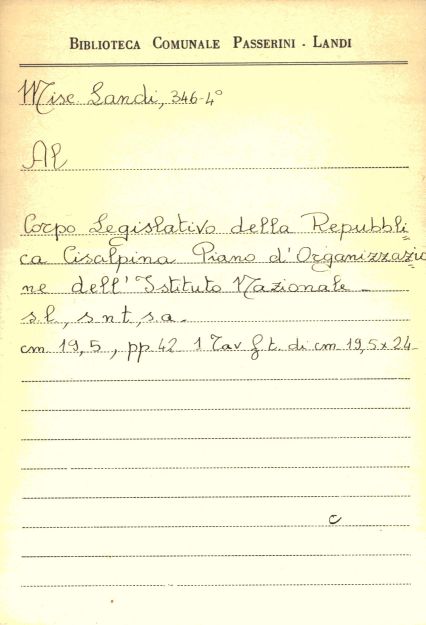 BIBLIOTECA COMUNALE PASSERINI - LANDI
Misc Landi, 346-4°
Al
Corpo Legislativo della Repubbli=
ca Cisalpina Piano d'Organizzazio
ne dell'Istituto Nazionale -
s.l, s n t, s.a.
cm. 19,5, pp 42 1 Tav f t. di cm 19,5 x 24
c